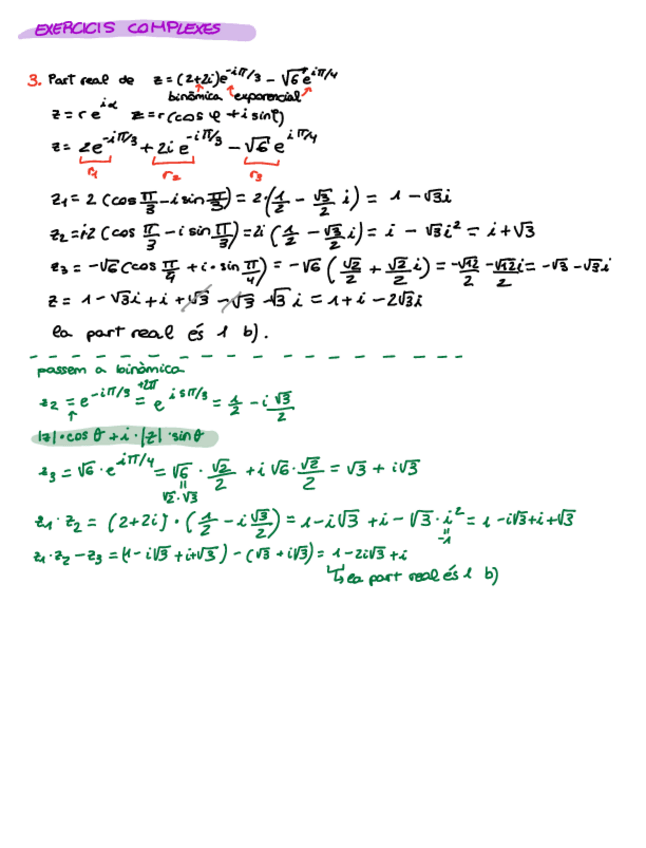 EXERCICIS COMPLEXES
3. Part real de z = (2+2i)e^{-iπ/3} - √6 e^{iπ/4}
binòmica exponencial
z = r e^{iα} z = r(cos φ + i sin φ)
z = 2e^{-iπ/3} + 2i e^{-iπ/3} - √6 e^{iπ/4}
r1 r2 r3
z1 = 2 (cos π/3 - i sin π/3) = 2·(1/2 - √3/2 i) = 1 - √3i
z2 = i2 (cos π/3 - i sin π/3) = 2i (1/2 - √3/2 i) = i - √3i² = i + √3
z3 = -√6 (cos π/4 + i · sin π/4) = -√6 (√2/2 + √2/2 i) = -√12/2 - √12/2 i = -√3 - √3i
z = 1 - √3i + i + √3 - √3 - √3 i = 1 + i - 2√3i
la part real és 1 b).
passem a binòmica
z2 = e^{-iπ/3} =^{+2π} e^{i5π/3} = 1/2 - i √3/2
|z|·cos θ + i·|z|·sin θ
z3 = √6 · e^{iπ/4} = √6 · √2/2 + i √6 · √2/2 = √3 + i√3
√2·√3
z1 · z2 = (2+2i) · (1/2 - i√3/2) = 1 - i√3 + i - √3 · i² = 1 - i√3 + i + √3
-1
z1 · z2 - z3 = (1 - i√3 + i + √3) - (√3 + i√3) = 1 - 2i√3 + i
↳ la part real és 1 b)